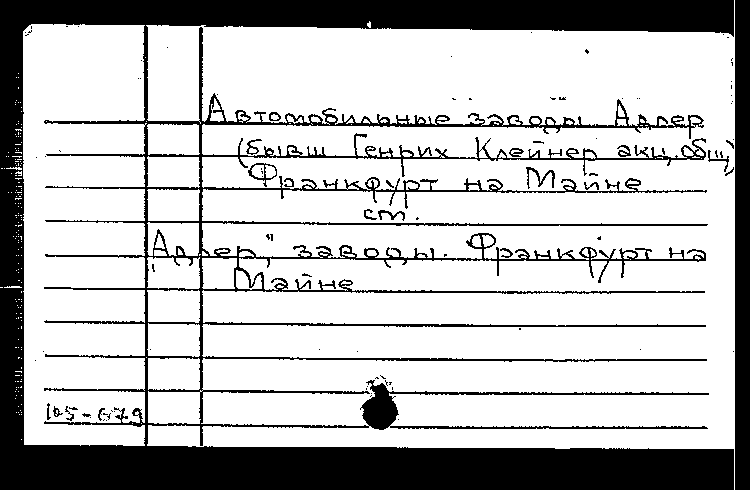 Автомобильные заводы Адлер
(бывш Генрих Клейнер акц. общ)
Франкфурт на Майне
ст.
"Адлер," заводы. Франкфурт на
Майне
105-679